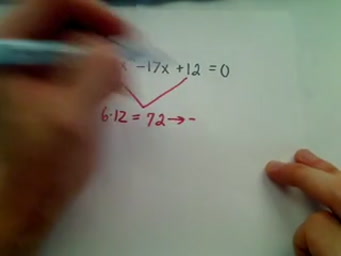 x -17x +12 = 0
6·12 = 72→-